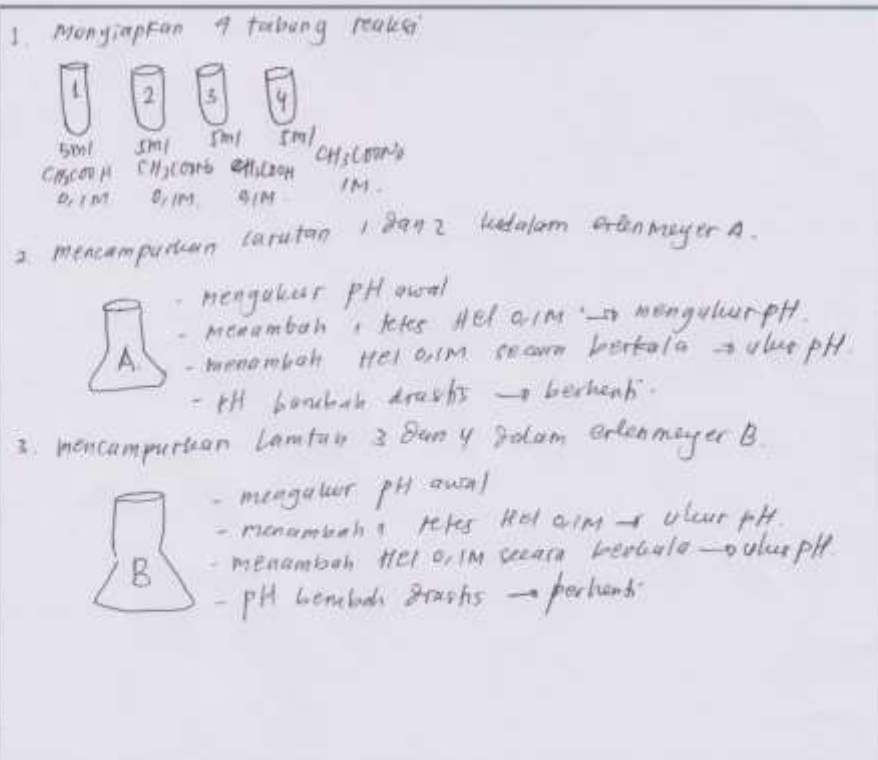 1. Menyiapkan 4 tabung reaksi
1 2 3 4
5ml 5ml 5ml 5ml
CH3COOH CH3COONa CH3COOH CH3COONa
0,1M 0,1M. 0,1M. 1M.
2. mencampurkan larutan 1 dan 2 kedalam erlenmeyer A.
- mengukur pH awal
- menambah 1 tetes HCl 0,1M → mengukur pH.
A. - menambah HCl 0,1M secara berkala → ukur pH.
- pH berubah drastis → berhenti.
3. mencampurkan Larutan 3 dan 4 dalam erlenmeyer B.
- mengukur pH awal
- menambah 1 tetes HCl 0,1M → ukur pH.
B - menambah HCl 0,1M secara berkala → ukur pH.
- pH berubah drastis → berhenti